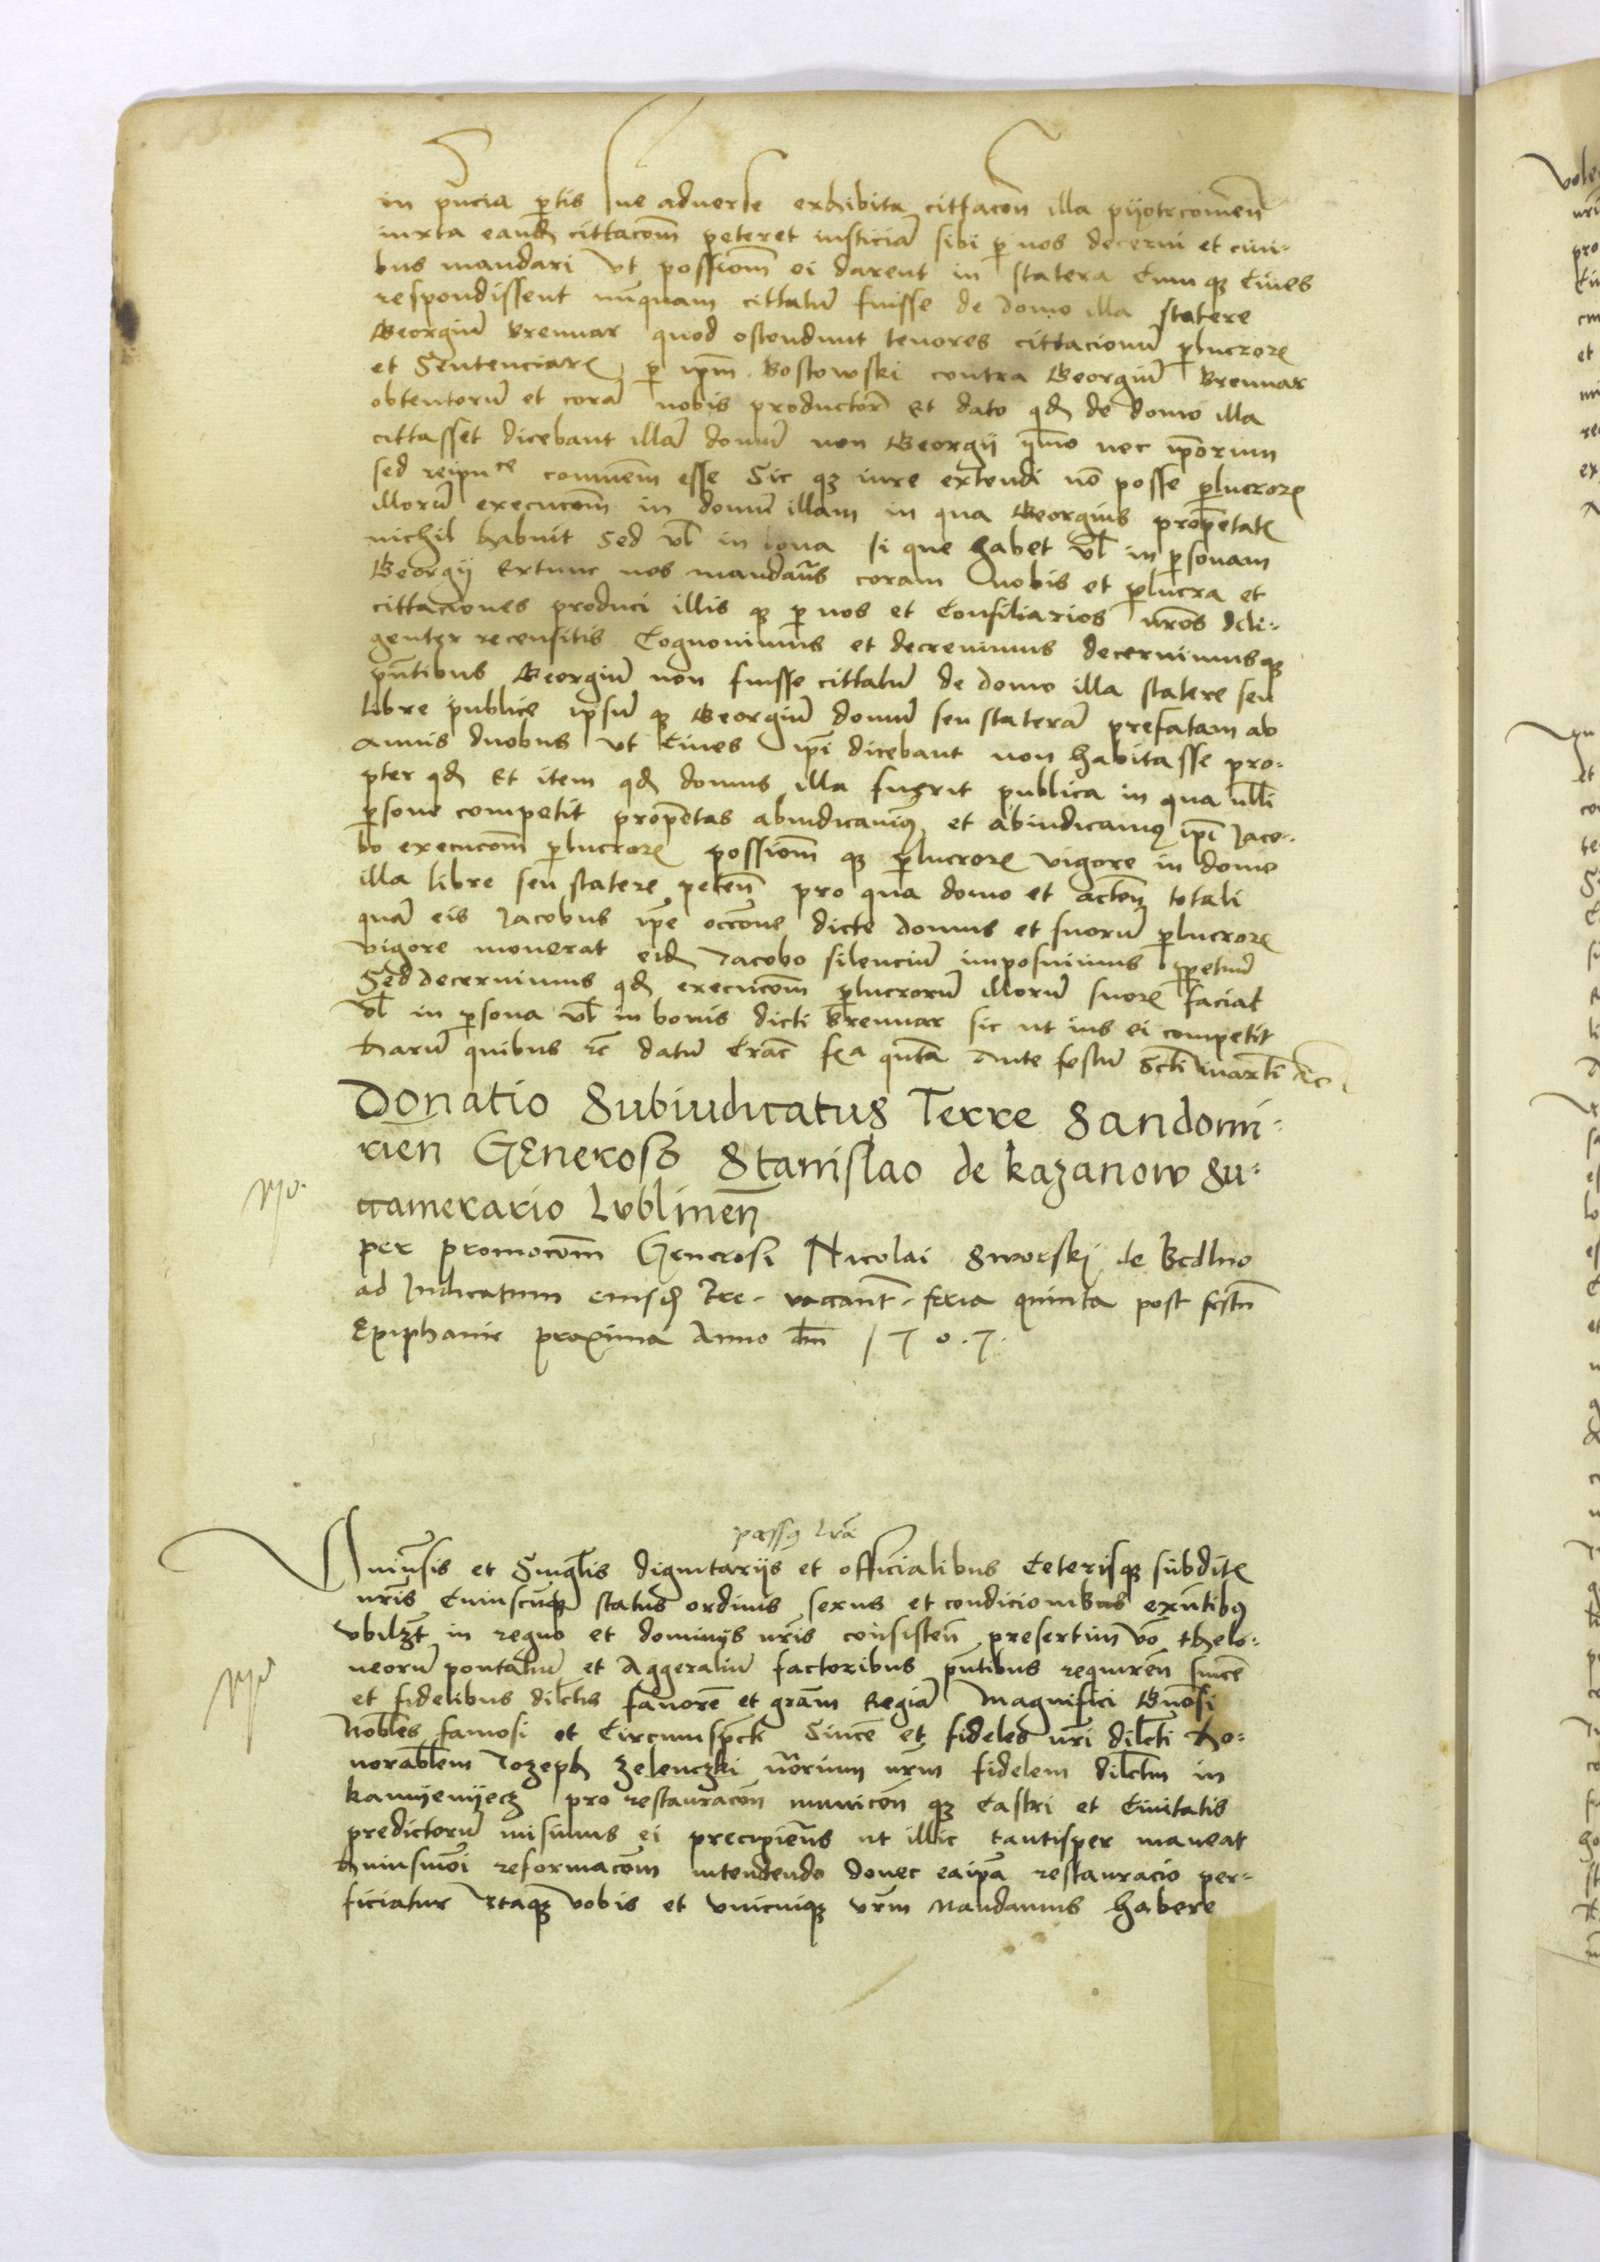 in pn̄cia ꝑtis sue adverse exhibita cittacōn illa pijotrcoineñ
iuxta eandē cittacōm peteret iusticiā sibi ꝑ nos decerni et civi-
bus mandari ut possiōm ei darent in statera Cumqȝ Cives
respondissent nunquam cittatū fuisse de domo illa statere
Georgiū Brennar quod ostendunt tenores cittacionū ꝑlucroꝝ
et Sentenciaꝝ ꝑ ip̄m Bostowski contra Georgiū Brennar
obtentorū et corā nobis productoꝝ Et dato qd̄ de domo illa
cittasset dicebant illā domū non Georgij ȳmo nec ip̄orum
sed reipuce comunem esse Sic qȝ iure extendi nō posse ꝑlucroꝝ
illorū execucōm in domū illam in qua Georgius prop̄etatꝭ
nichil habuit Sed vl̄ in bona si que habet vl̄ in ꝑsonam
Georgij Extunc nos mandavīs coram nobis et ꝑlucra et
cittaciones produci illis qȝ ꝑ nos et Consiliarios nr̄os dili-
genter recensitis Cognovimus et decrevimus decernimusqȝ
pn̄tibus Georgiū non fuisse cittatū de domo illa statere seu
libre publice ipsū qȝ Georgiū domū seu staterā prefatam ab
annis duobus ut Cives ip̄i dicebant non habitasse pro-
pter qd̄ Et item qd̄ domus illa fuerit publica in qua nulli
ꝑsone competit prop̄etas abiudicavimꝰ et abiudicamꝰ ip̄i Jaco-
bo execucōm ꝑlucroꝝ possiōm qȝ ꝑlucroꝝ vigore in domo
illa libre seu statere peteñ pro qua domo et actōn totali
quā eis Jacobus ip̄e occ̄one dicte domus et suorū ꝑlucroꝝ
vigore moverat eid̄ Jacobo silenciū imposuimus ꝑpetuū
Sed decernimus qd̄ execucōm ꝑlucrorū illorū suoꝝ faciat
vl̄ in ꝑsona vl̄ in bonis dicti Brennar sic ut ius ei competit
Harū quibus ꝛc̄ datū Crac̄ fea quīta Ante festū Scti martī
Donatio Subiudicatus Terre Sandomi-
rien Generoso Stanislao de kazanow Su-
ccamerario Lvblineñ
per promocōm Generosi Nicolai Sworski de Bedlno
ad Judicatum eiusd̄ Tre vaccant feria quinta post festū
Epiphanie proxima Anno dm̄ 1507
passꝰ lr̄a
Univ̄sis et Singl̄is dignitarijs et officialibus Ceterisqȝ subditꝭ
nr̄is Cuiuscūqȝ status ordinis sexus et condicionibus exn̄tibꝰ
ubil̄ꝫt in regno et dominijs nr̄is consisteñ presertim vō thelo-
neorū pontaliū et Aggeraliū factoribus pn̄tibus requireñ sincē
et fidelibus dil̄ctis favorē et gr̄am Regiā Magnifici Gn̄osi
Nobl̄es famosi et Circumspc̄ti Sincē et fideles nr̄i dil̄cti Ho-
norabl̄em Jozeph zelenczki n̄orium nr̄m fidelem dil̄ctm in
kamyenyecz pro restauracōn municōn qȝ Castri et Civitatis
predictorū misimus ei precipien̄s ut illic tantisper maneat
huiusmōi reformacōm intendendo donec eaip̄a restauracio per-
ficiatur Itaqȝ vobis et unicuiqȝ vr̄m Mandamus habere